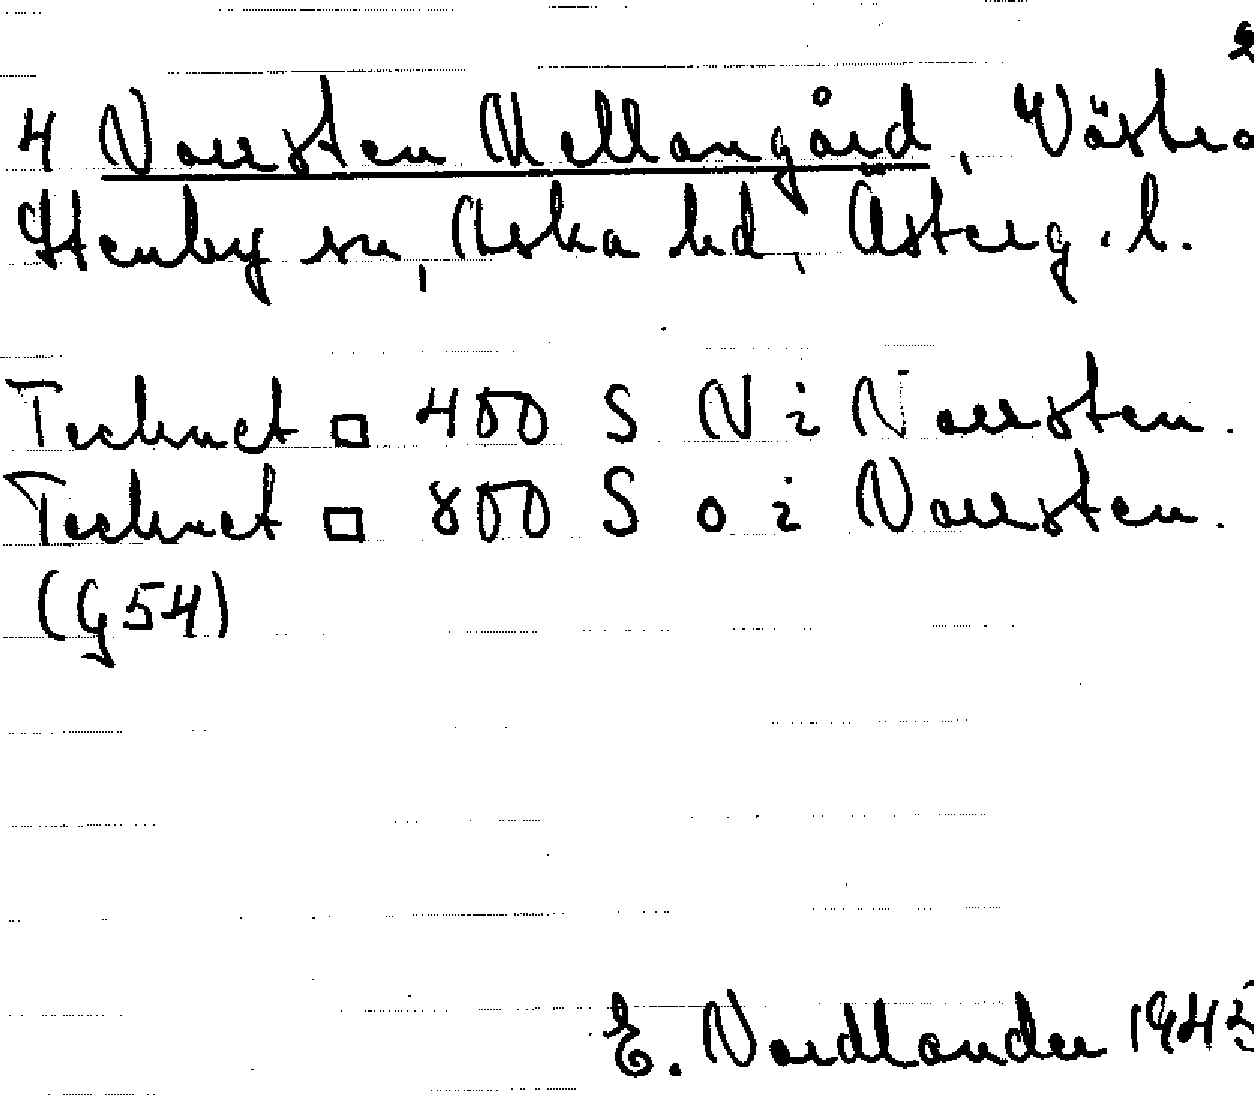 2
4 Narrsten Mellangård, Västra
Stenby sn, Aska hd, Österg. l.
Tecknet □ 400 S N i Narrsten.
Tecknet □ 800 S o i Narrsten.
(G54)
E. Nordlander 1945